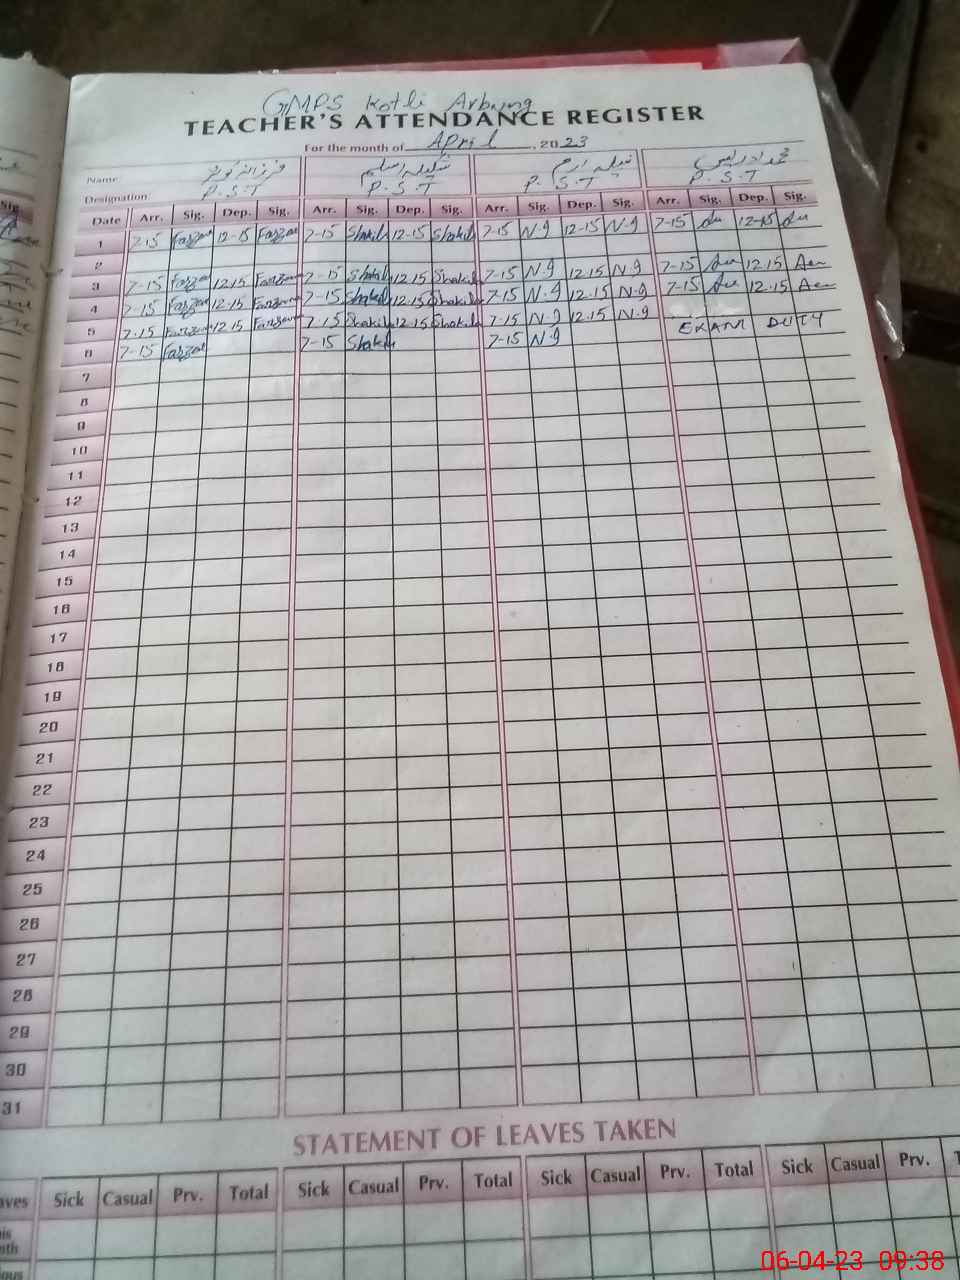 GMPS Kotli Arbung
TEACHER'S ATTENDANCE REGISTER
For the month of April, 2023
Name: شکیلہ اسلم نبیلہ ارم محمد ادریس
Designation: P.S.T P.S.T P.S.T P.S.T
Date Arr. Sig. Dep. Sig. Arr. Sig. Dep. Sig. Arr. Sig. Dep. Sig. Arr. Sig. Dep. Sig.
1 7-15 Farzan 12-15 Farzan 7-15 Shakila 12-15 Shakila 7-15 N-9 12-15 N-9 7-15 12-15
2
3 7-15 Farzan 12.15 Farzana 7-15 Shakila 12.15 Shakila 7-15 N-9 12.15 N-9 7-15 12.15
4 7-15 Farzan 12.15 Farzana 7-15 Shakila 12.15 Shakila 7-15 N-9 12.15 N-9 7-15 12.15
5 7.15 Farzana 12.15 Farzana 7.15 Shakila 12.15 Shakila 7-15 N-9 12.15 N-9 EXAM DUTY
6 7-15 Farzan 7-15 Shakila 7-15 N-9
7
8
9
10
11
12
13
14
15
16
17
18
19
20
21
22
23
24
25
26
27
28
29
30
31
STATEMENT OF LEAVES TAKEN
Sick Casual Prv. Total Sick Casual Prv. Total Sick Casual Prv. Total Sick Casual Prv.
06-04-23 09:38